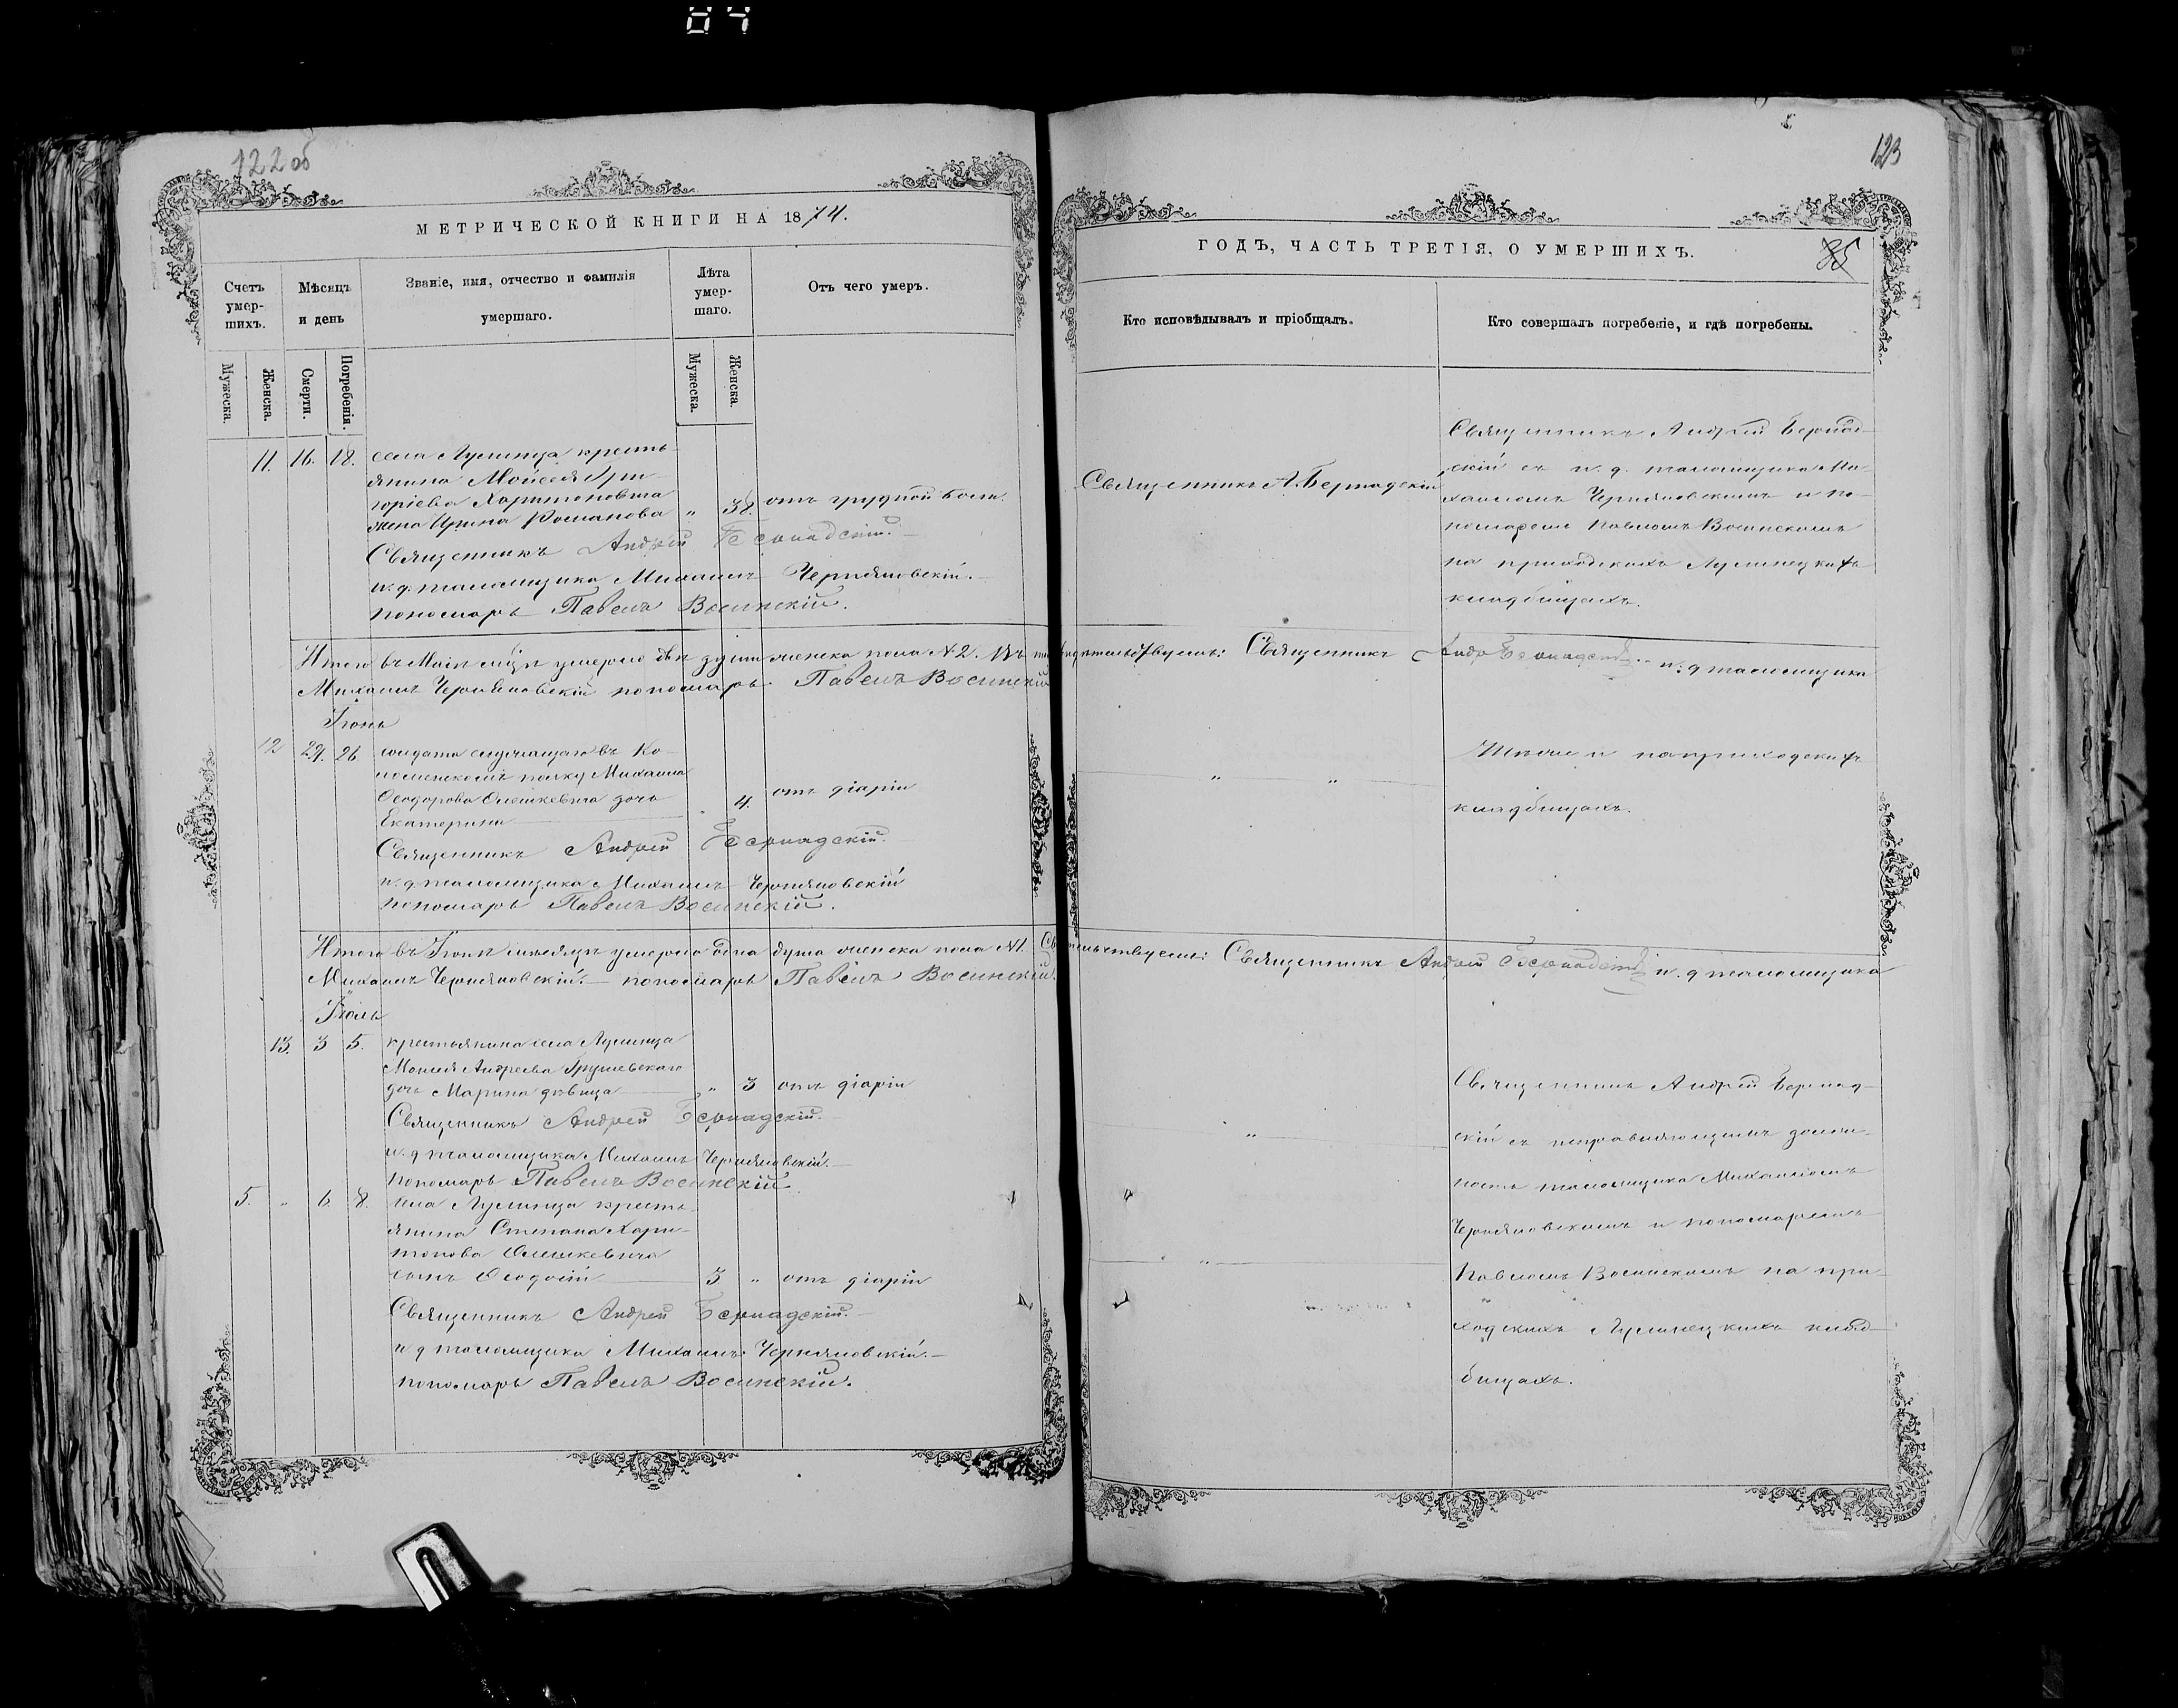 04
122 об
МЕТРИЧЕСКОЙ КНИГИ НА 1874.
Счетъ умер-шихъ.
Мѣсяцъ и день
Званіе, имя, отчество и фамилія умершаго.
Лѣта умер-шаго.
Отъ чего умеръ.
Мужеска.
Женска.
Смерти.
Погребенія.
Мужеска.
Женска.
11. 16. 18. села Лулинца кресть-
янина Мойсея Гри-
горіева Харитоновича
жена Ирина Романова „ 38. отъ грудной боли.
Священникъ Андрей Бернадскій.
и. д. псаломщика Михаилъ Черняновскій.
пономарь Павелъ Восинскій.
Итого въ Маіѣ м-цѣ умерло двѣ души женска пола № 2. Въ
Михаилъ Черняновскій пономарь Павелъ Восинскій
Іюнь
12 24. 26 солдата служащаго въ Ко-
ломенскомъ полку Михаила
Ѳеодорова Олешкевича дочь 4. отъ діаріи
Екатерина
Священникъ Андрей Бернадскій.
и. д. псаломщика Михаилъ Черняновскій
пономарь Павелъ Восинскій.
Итого въ Іюнѣ мѣсяцѣ умерло одна душа женска пола №1. Св
Михаилъ Черняновскій. пономарь Павелъ Восинскій.
Іюль
13. 3 5. крестьянина села Лулинца
Моисея Андреева Грушевскаго
дочь Марина дѣвица „ 3 отъ діаріи
Священникъ Андрей Бернадскій.
и. д псаломщика Михаилъ Черняновскій.
пономарь Павелъ Восинскій.
5. „ 6. 8. села Лулинца кресть-
янина Степана Хари-
тонова Олешкевича
сынъ Ѳеодосій 3 „ отъ діаріи
Священникъ Андрей Бернадскій.
и д псаломщика Михаилъ Черняновскій.
пономарь Павелъ Восинскій.
123
ГОДЪ, ЧАСТЬ ТРЕТІЯ, О УМЕРШИХЪ.
85
Кто исповѣдывалъ и пріобщалъ.
Кто совершалъ погребеніе, и гдѣ погребены.
Священникъ А. Бернадскій
Священникъ Андрей Бернад-
скій съ и. д. псаломщика Ми-
хаиломъ Черняновскимъ и по-
номаремъ Павломъ Восинскимъ
на приходскихъ Лулинецкихъ
кладбищахъ.
дѣтельствуемъ: Священникъ Андрей Бернадскій и. д псаломщика
„ „
Тѣже и на приходскихъ
кладбищахъ.
тельствуемъ: Священникъ Андрей Бернадскій и. д псаломщика
„
„
Священникъ Андрей Бернад-
скій съ исправляющимъ долж-
ность псаломщика Михаиломъ
Черняновскимъ и пономаремъ
Павломъ Восинскимъ на при-
ходскихъ Лулинецкихъ клад-
бищахъ.